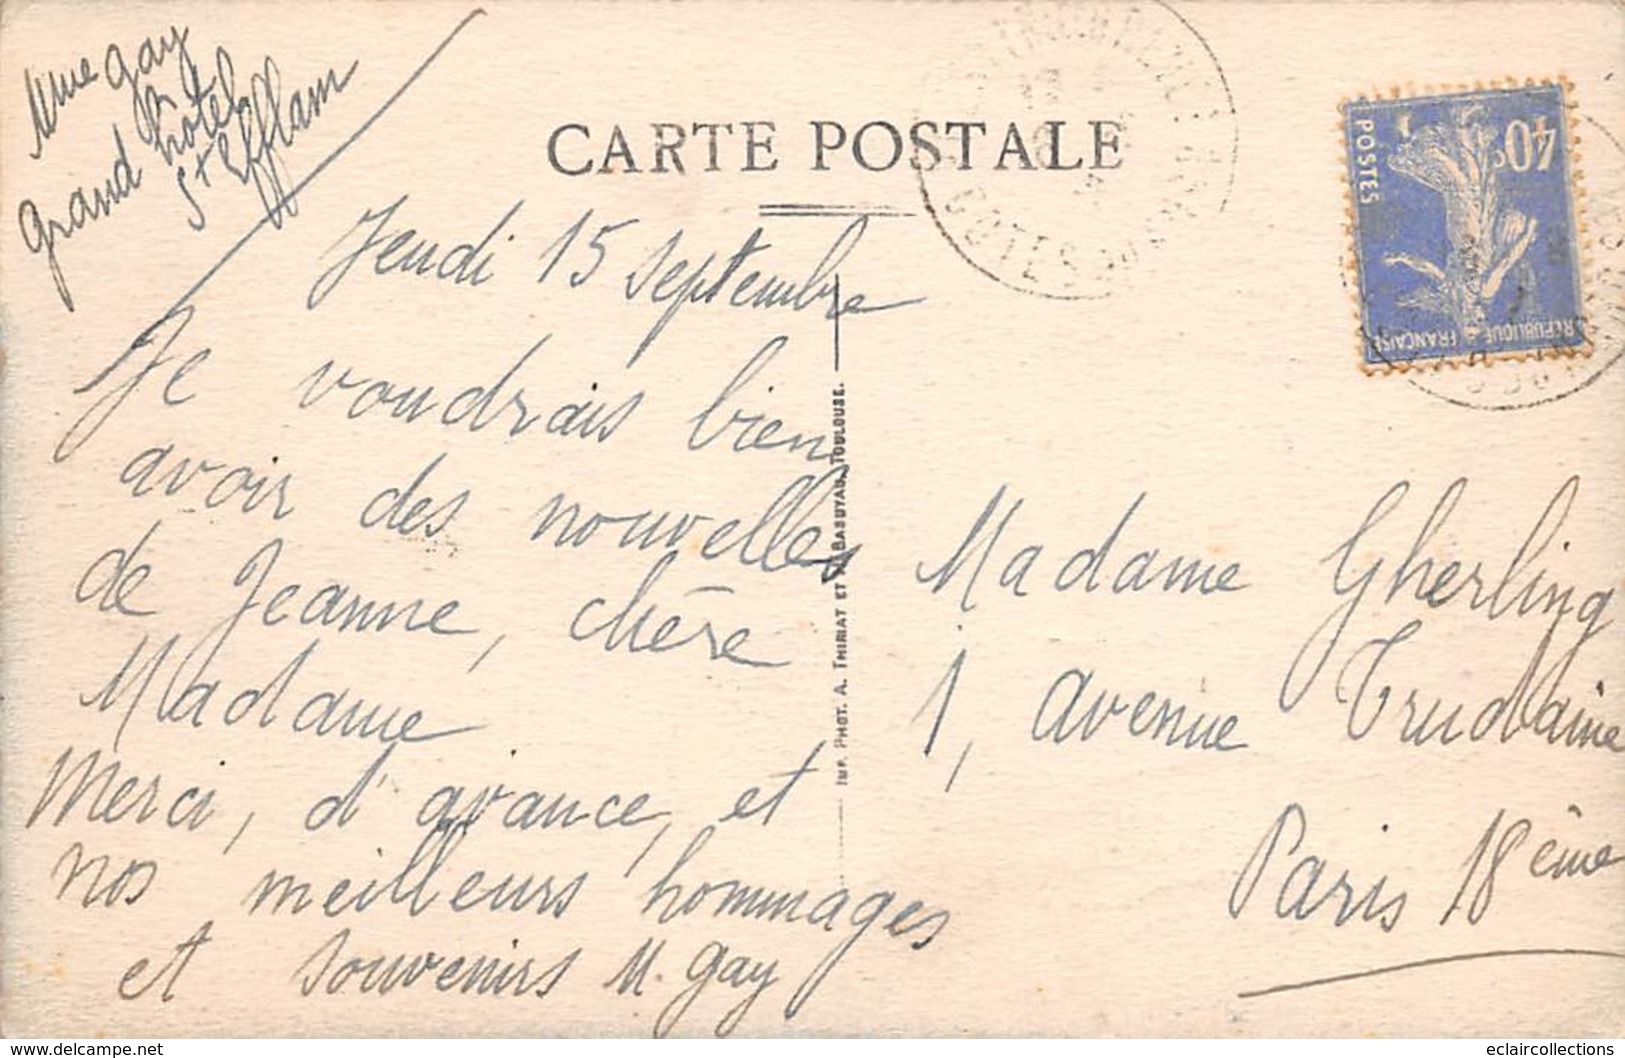 Mme Gay
Grand hôtel
St Efflam
CARTE POSTALE
Jeudi 15 septembre
Je voudrais bien
avoir des nouvelles
de Jeanne, chère
Madame
Merci, d'avance, et
nos meilleurs hommages
et souvenirs M. Gay
IMP. PHOT. A. THIRIAT ET BASUYAU, TOULOUSE.
COTES DU NORD
40c
POSTES
RÉPUBLIQUE FRANÇAISE
Madame Gherling
1, avenue Trudaine
Paris 18ème
eclaircollections